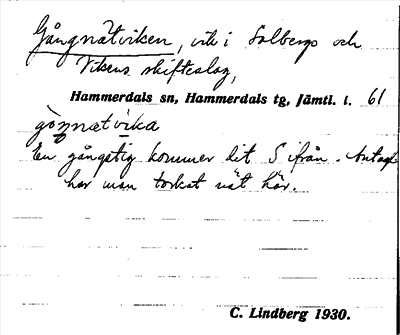 Gångnätviken, vik i Solbergs och
Vikens skifteslag,
Hammerdals sn, Hammerdals tg, Jämtl. l. 61
gọŋnætvika
En gångstig kommer dit S ifrån. Antagl.
har man torkat nät här.
C. Lindberg 1930.